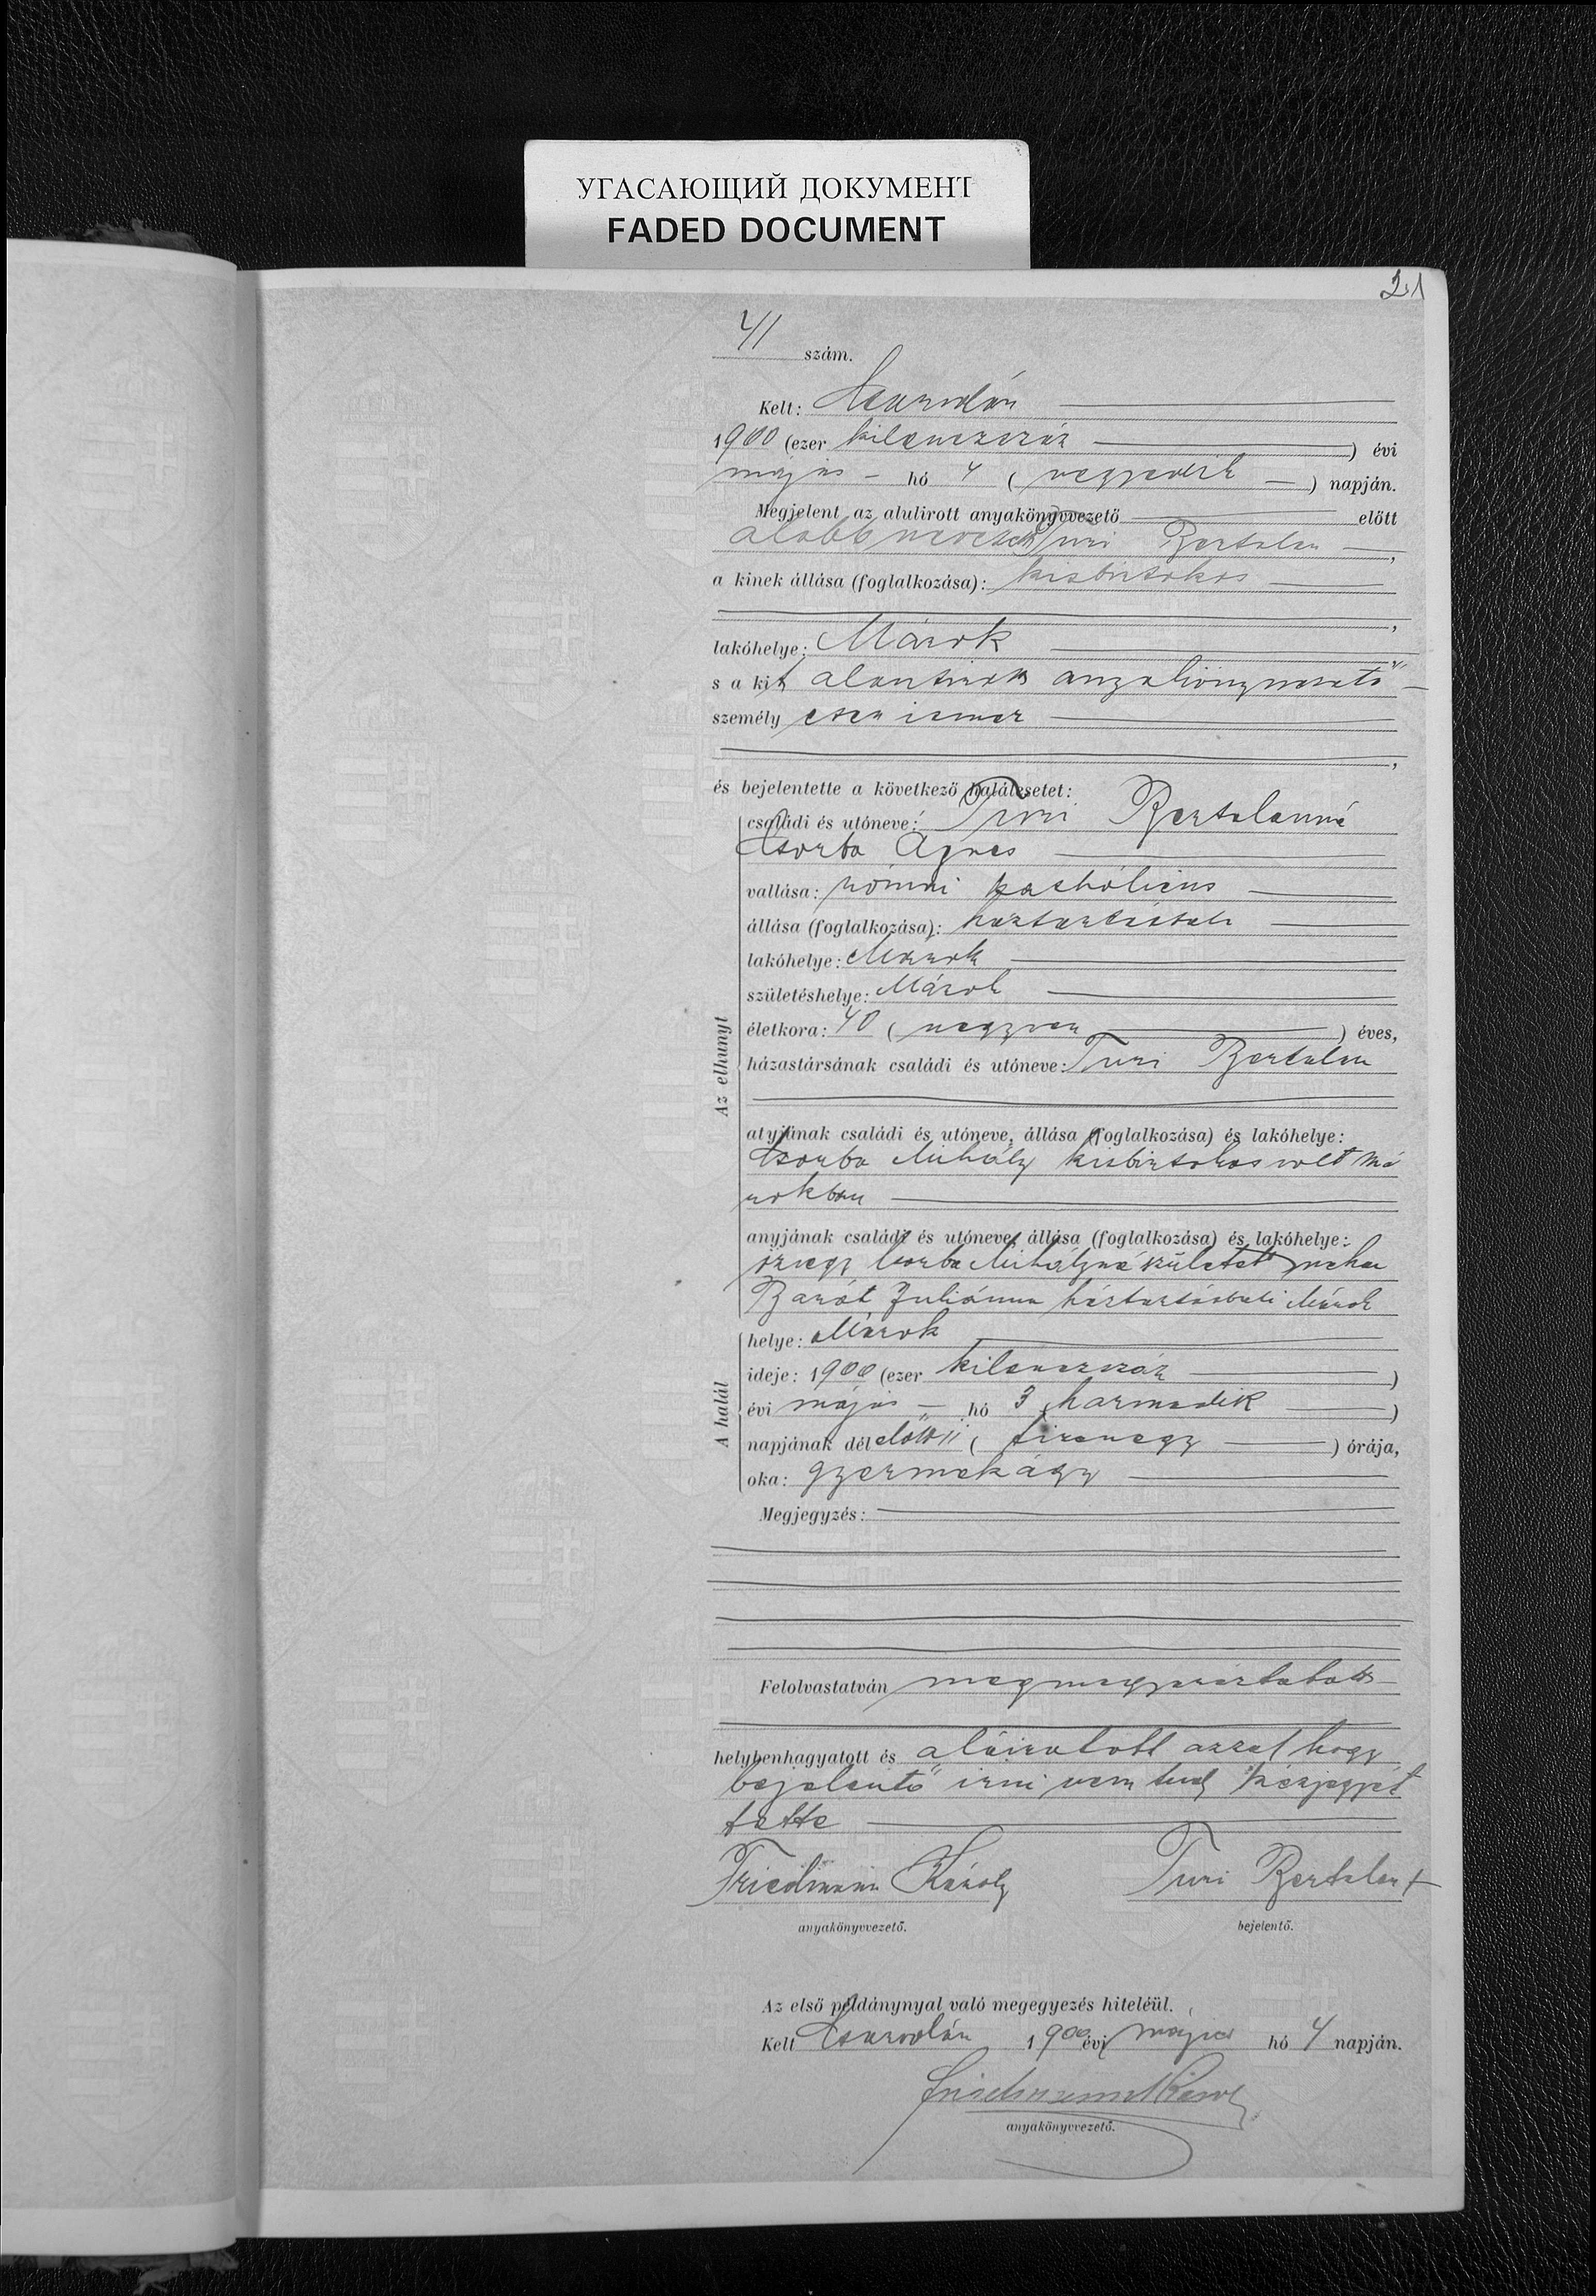 УГАСАЮЩИЙ ДОКУМЕНТ
FADED DOCUMENT
21
41 szám.
Kelt: Csarodán
1900 (ezer kilenczszáz ) évi
május hó 4 ( negyedik ) napján.
Megjelent az alulirott anyakönyvvezető előtt
alább nevezett Turi Bertalan ,
a kinek állása (foglalkozása): kisbirtokos
,
lakóhelye: Márok
s a kit alantirott anyakönyvvezető
személyesen ismer
,
és bejelentette a következő halálesetet:
családi és utóneve: Turi Bertalanné
Csorba Ágnes
vallása: római katholicus
állása (foglalkozása): háztartásbeli
lakóhelye: Márok
születéshelye: Márok
életkora: 40 ( negyven ) éves,
házastársának családi és utóneve: Turi Bertalan
Az elhunyt
atyjának családi és utóneve, állása (foglalkozása) és lakóhelye:
Csorba Mihály kisbirtokos volt Má
rokban
anyjának családi és utóneve, állása (foglalkozása) és lakóhelye:
özvegy Csorba Mihályné született
Barát Juliánna háztartásbeli Márok
helye: Márok
ideje: 1900 (ezer kilenczszáz )
évi május hó 3 harmadik )
A halál
napjának délelőtt 11 ( tizenegy ) órája,
oka: gyermekágy
Megjegyzés:
Felolvastatván megmagyaráztatott
helybenhagyatott és aláiratott azzal hogy
bejelentő irni nem tud kézjegyét
tette
Friedmann Károly Turi Bertalan +
anyakönyvvezető. bejelentő.
Az első példánynyal való megegyezés hiteléül.
Kelt Csarodán 1900 évi május hó 4 napján.
Friedmann Károly
anyakönyvvezető.